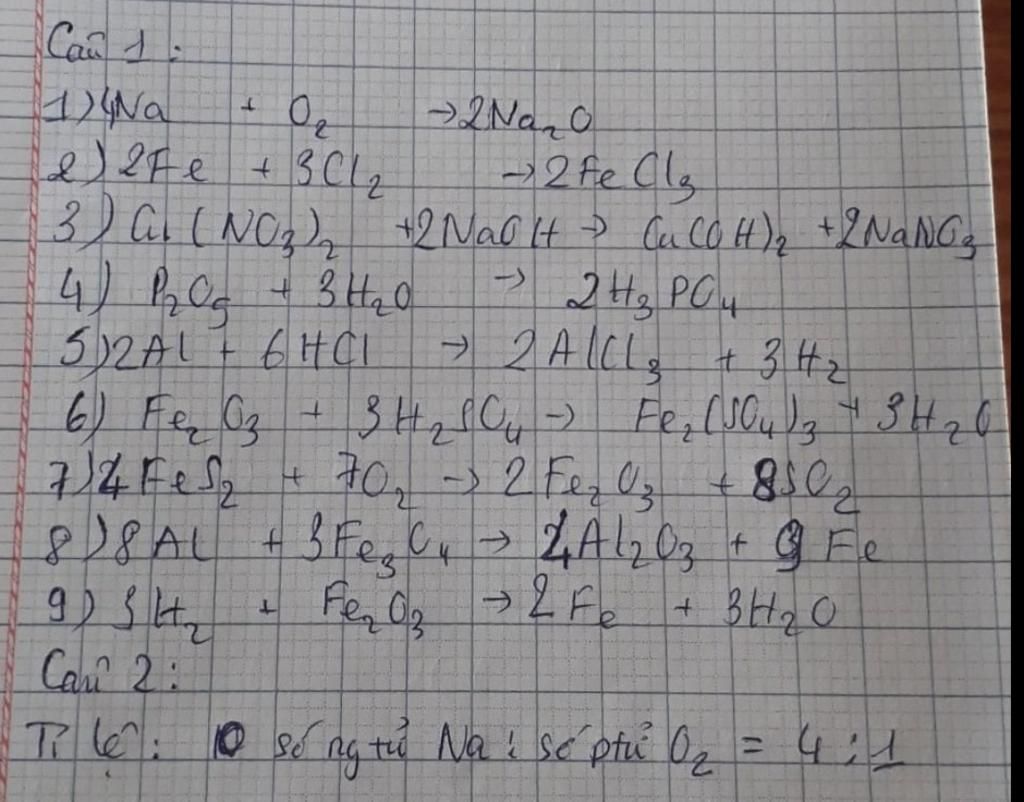 Câu 1:
1) 4Na + O₂ → 2Na₂O
2) 2Fe + 3Cl₂ → 2FeCl₃
3) Cu(NO₃)₂ + 2NaOH → Cu(OH)₂ + 2NaNO₃
4) P₂O₅ + 3H₂O → 2H₃PO₄
5) 2Al + 6HCl → 2AlCl₃ + 3H₂
6) Fe₂O₃ + 3H₂SO₄ → Fe₂(SO₄)₃ + 3H₂O
7) 4FeS₂ + 7O₂ → 2Fe₂O₃ + 8SO₂
8) 8Al + 3Fe₃O₄ → 4Al₂O₃ + 9Fe
9) 3H₂ + Fe₂O₃ → 2Fe + 3H₂O
Câu 2:
Tỉ lệ: số ng tử Na : số ptử O₂ = 4 : 1